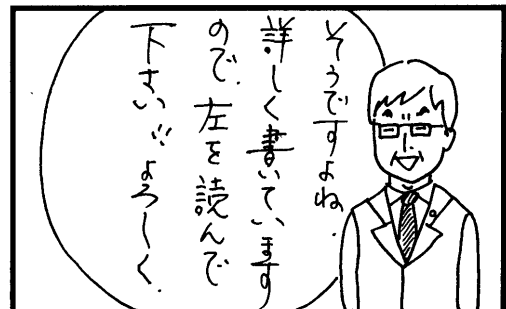 そうですよね.
詳しく書いています
ので、左を読んで
下さい!!よろしく.